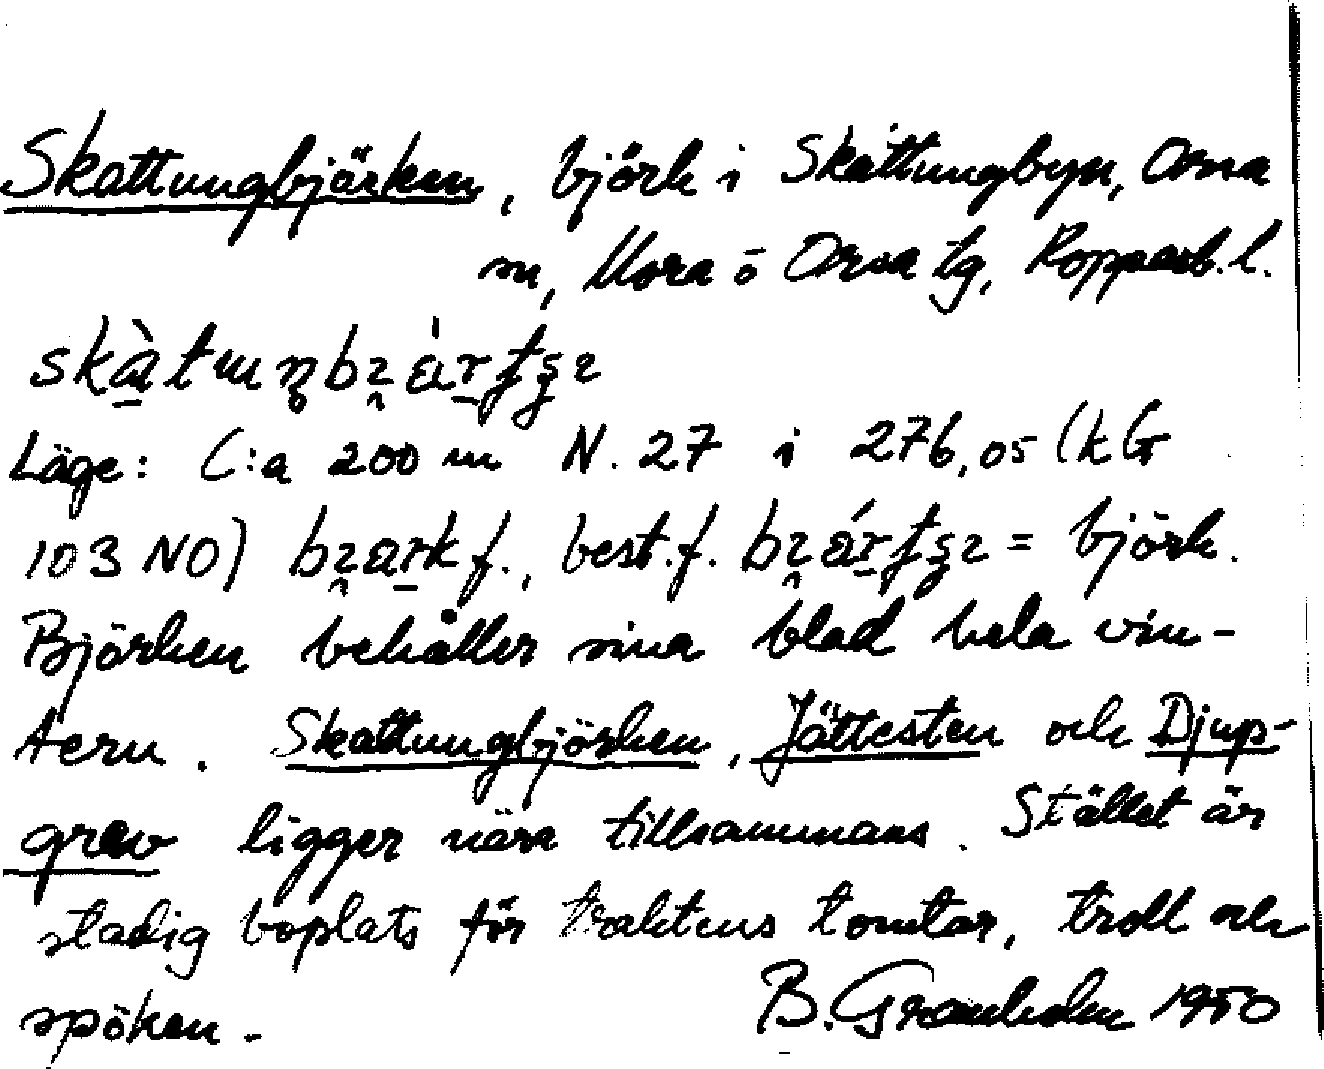 Skattungbjärken, björk i Skattungbyn, Orsa
sn, Mora o Orsa tg, Kopparb. l.
Läge: C:a 200 m N. 27 i 276,05 (kG
103 NO) f., best. f. = björk.
Björken behåller sina blad hela vin-
tern. Skattungbjörken, Jättesten och Djup-
grav ligger nära tillsammans. Stället är
stadig boplats för traktens tomtar, troll och
spöken. B. Granholm 1950